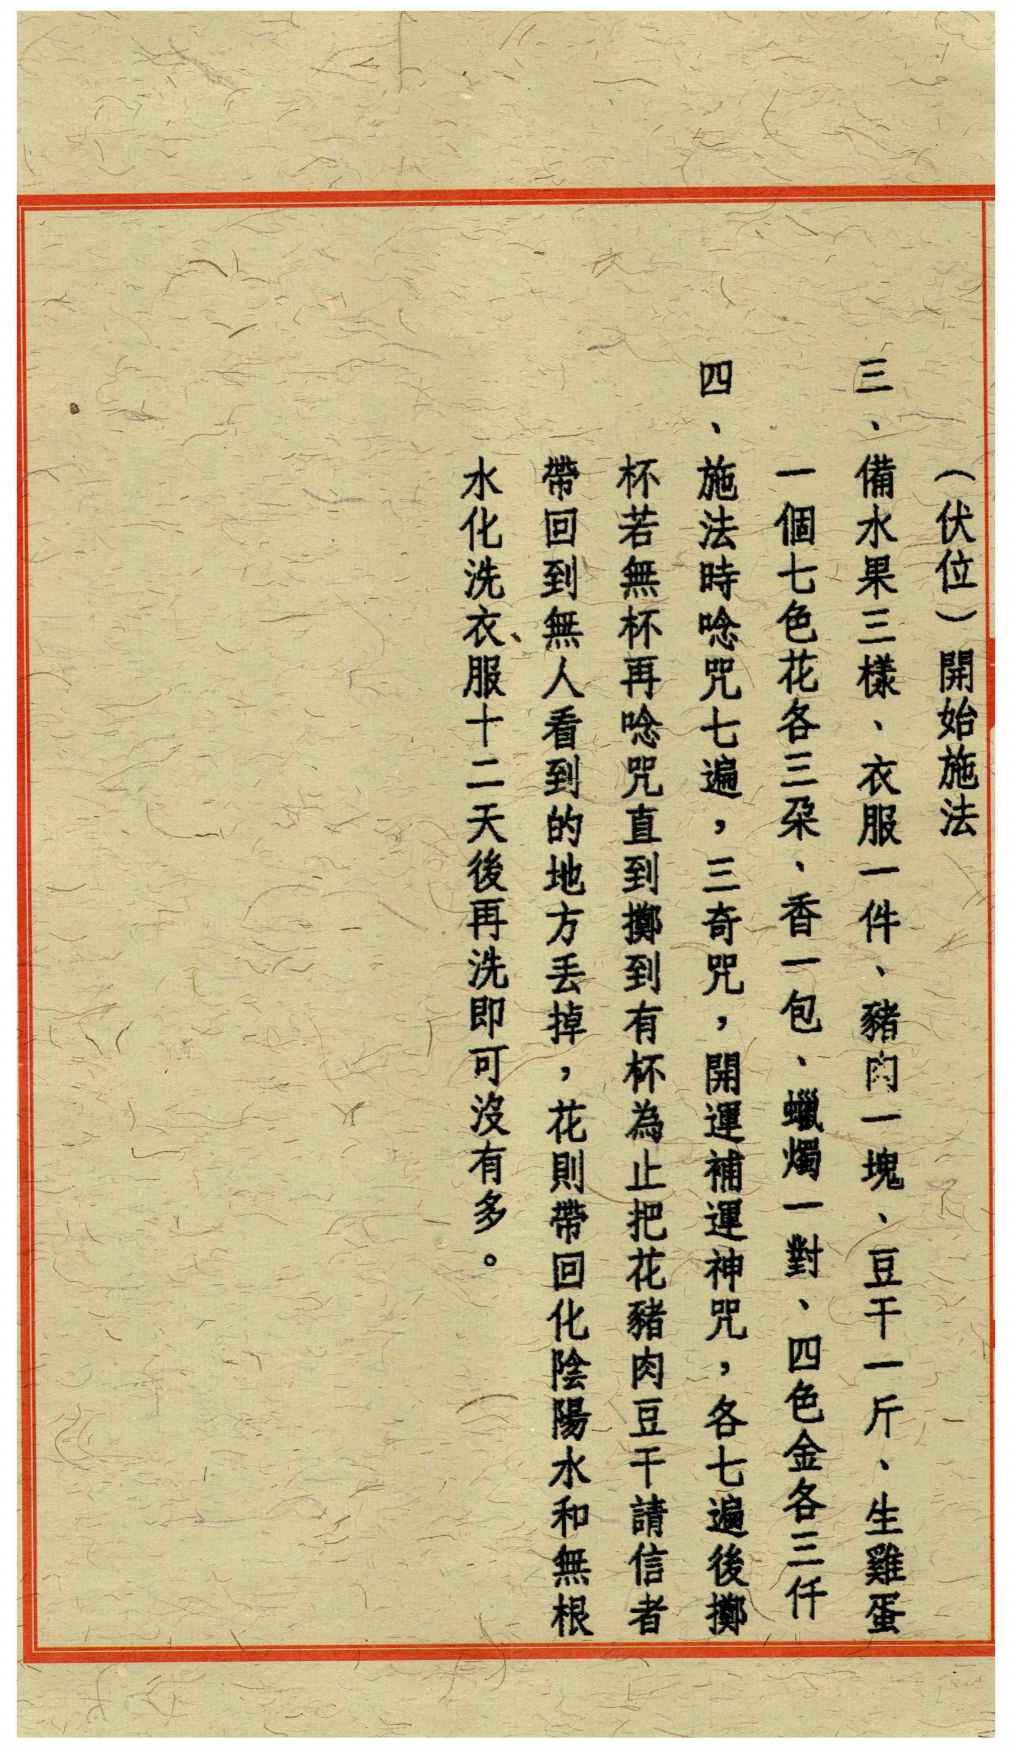 （伏位）開始施法
三、備水果三樣、衣服一件、豬肉一塊、豆干一斤、生雞蛋
一個七色花各三朶、香一包、蠟燭一對、四色金各三仟
四、施法時唸咒七遍，三奇咒，開運補運神咒，各七遍後擲
杯若無杯再唸咒直到擲到有杯為止把花豬肉豆干請信者
帶回到無人看到的地方丟掉，花則帶回化陰陽水和無根
水化洗衣服十二天後再洗即可沒有多。